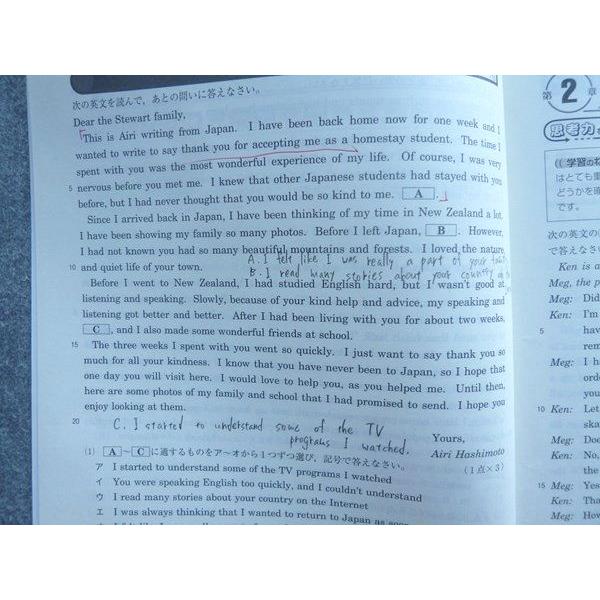 次の英文を読んで，あとの問いに答えなさい。
Dear the Stewart family,
This is Airi writing from Japan. I have been back home now for one week and I
wanted to write to say thank you for accepting me as a homestay student. The time I
spent with you was the most wonderful experience of my life. Of course, I was very
5 nervous before you met me. I knew that other Japanese students had stayed with you
before, but I had never thought that you would be so kind to me. A .
Since I arrived back in Japan, I have been thinking of my time in New Zealand a lot.
I have been showing my family so many photos. Before I left Japan, B . However,
I had not known you had so many beautiful mountains and forests. I loved the nature
A. I felt like I was really a part of your
10 and quiet life of your town.
B. I read many stories about your country
Before I went to New Zealand, I had studied English hard, but I wasn't good at
listening and speaking. Slowly, because of your kind help and advice, my speaking and
listening got better and better. After I had been living with you for about two weeks,
C , and I also made some wonderful friends at school.
15 The three weeks I spent with you went so quickly. I just want to say thank you so
much for all your kindness. I know that you have never been to Japan, so I hope that
one day you will visit here. I would love to help you, as you helped me. Until then,
here are some photos of my family and school that I had promised to send. I hope you
enjoy looking at them.
20 C. I started to understand some of the TV
programs I watched.
Yours,
Airi Hashimoto
(1) A ～ C に適するものをア～オから1つずつ選び，記号で答えなさい。 (1点×3)
ア I started to understand some of the TV programs I watched
イ You were speaking English too quickly, and I couldn't understand
ウ I read many stories about your country on the Internet
エ I was always thinking that I wanted to return to Japan as soon
第 2 章
思考力
学習の
はとても重
どうかを頭
です。
次の英文の
で答えなさい
Ken is a
Meg, the p
Ken: I'm
5 have
rem
Meg: I ha
orde
you
10 Ken: Let
ska
Meg: Doe
Ken: No,
the
15 Meg: Yes
Ken: Tha
Meg: How